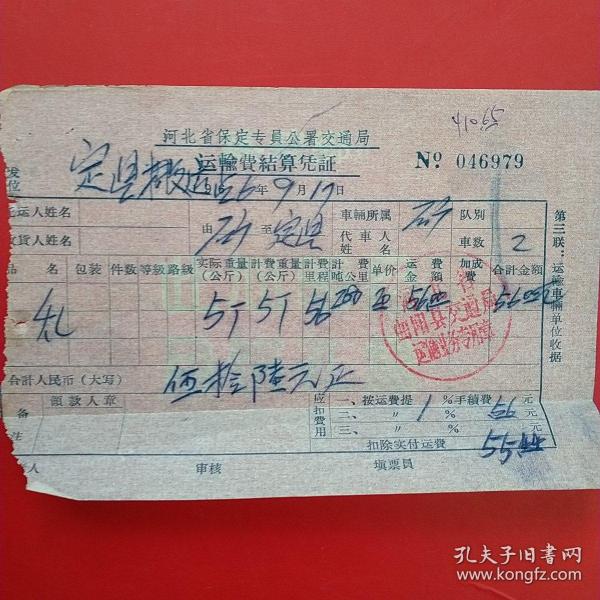 41065
河北省保定专員公署交通局
运輸費結算凭証
№ 046979
发
位
定县
9月17日
托运人姓名
收貨人姓名
由 至 定县
車輛所属
代車人
姓名
队別
車数 2
品名 包装 件数 等級 路級 实际重量(公斤) 計費重量(公斤) 計費里程 計費吨公里 单价 运費金額 加成費 合計金額
5T 5T 56 280 5600 5600
合計人民币（大写） 伍拾陸元正
備
注
領款人章
应扣費用
一、按运費提 1 %手續費 56 元
二、 〃 % 元
三、 〃 % 元
扣除实付运費 5544
人 审核 填票員
第三联：运輸車輛单位收据
曲阳县交通局
运输业务专用章
孔夫子旧书网
www.kongfz.com